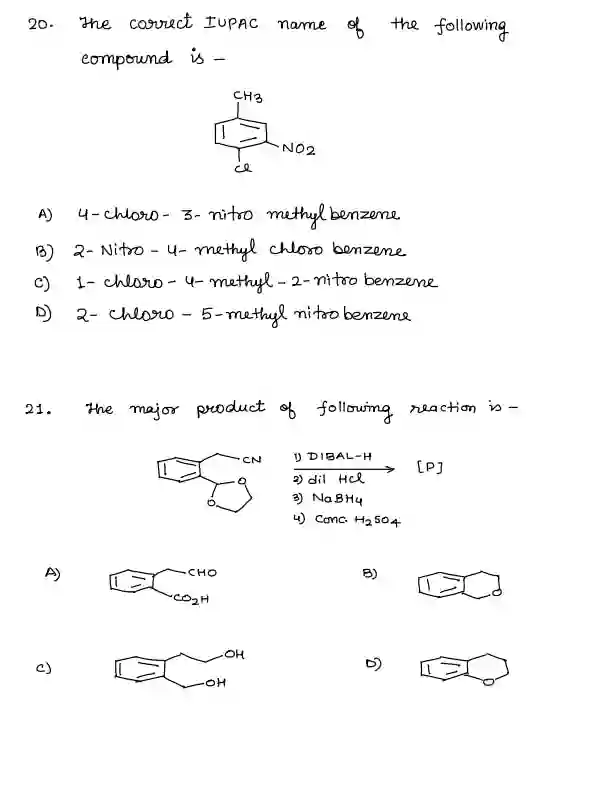 20. The correct IUPAC name of the following
compound is -
CH3
NO2
Cl
A) 4-chloro-3-nitro methylbenzene
B) 2-Nitro-4-methyl chloro benzene
C) 1-chloro-4-methyl-2-nitro benzene
D) 2-chloro-5-methyl nitro benzene
21. The major product of following reaction is -
CN
O
O
1) DIBAL-H
2) dil HCl
3) NaBH4
4) Conc. H2SO4
[P]
A)
CHO
CO2H
B)
O
C)
OH
OH
D)
O